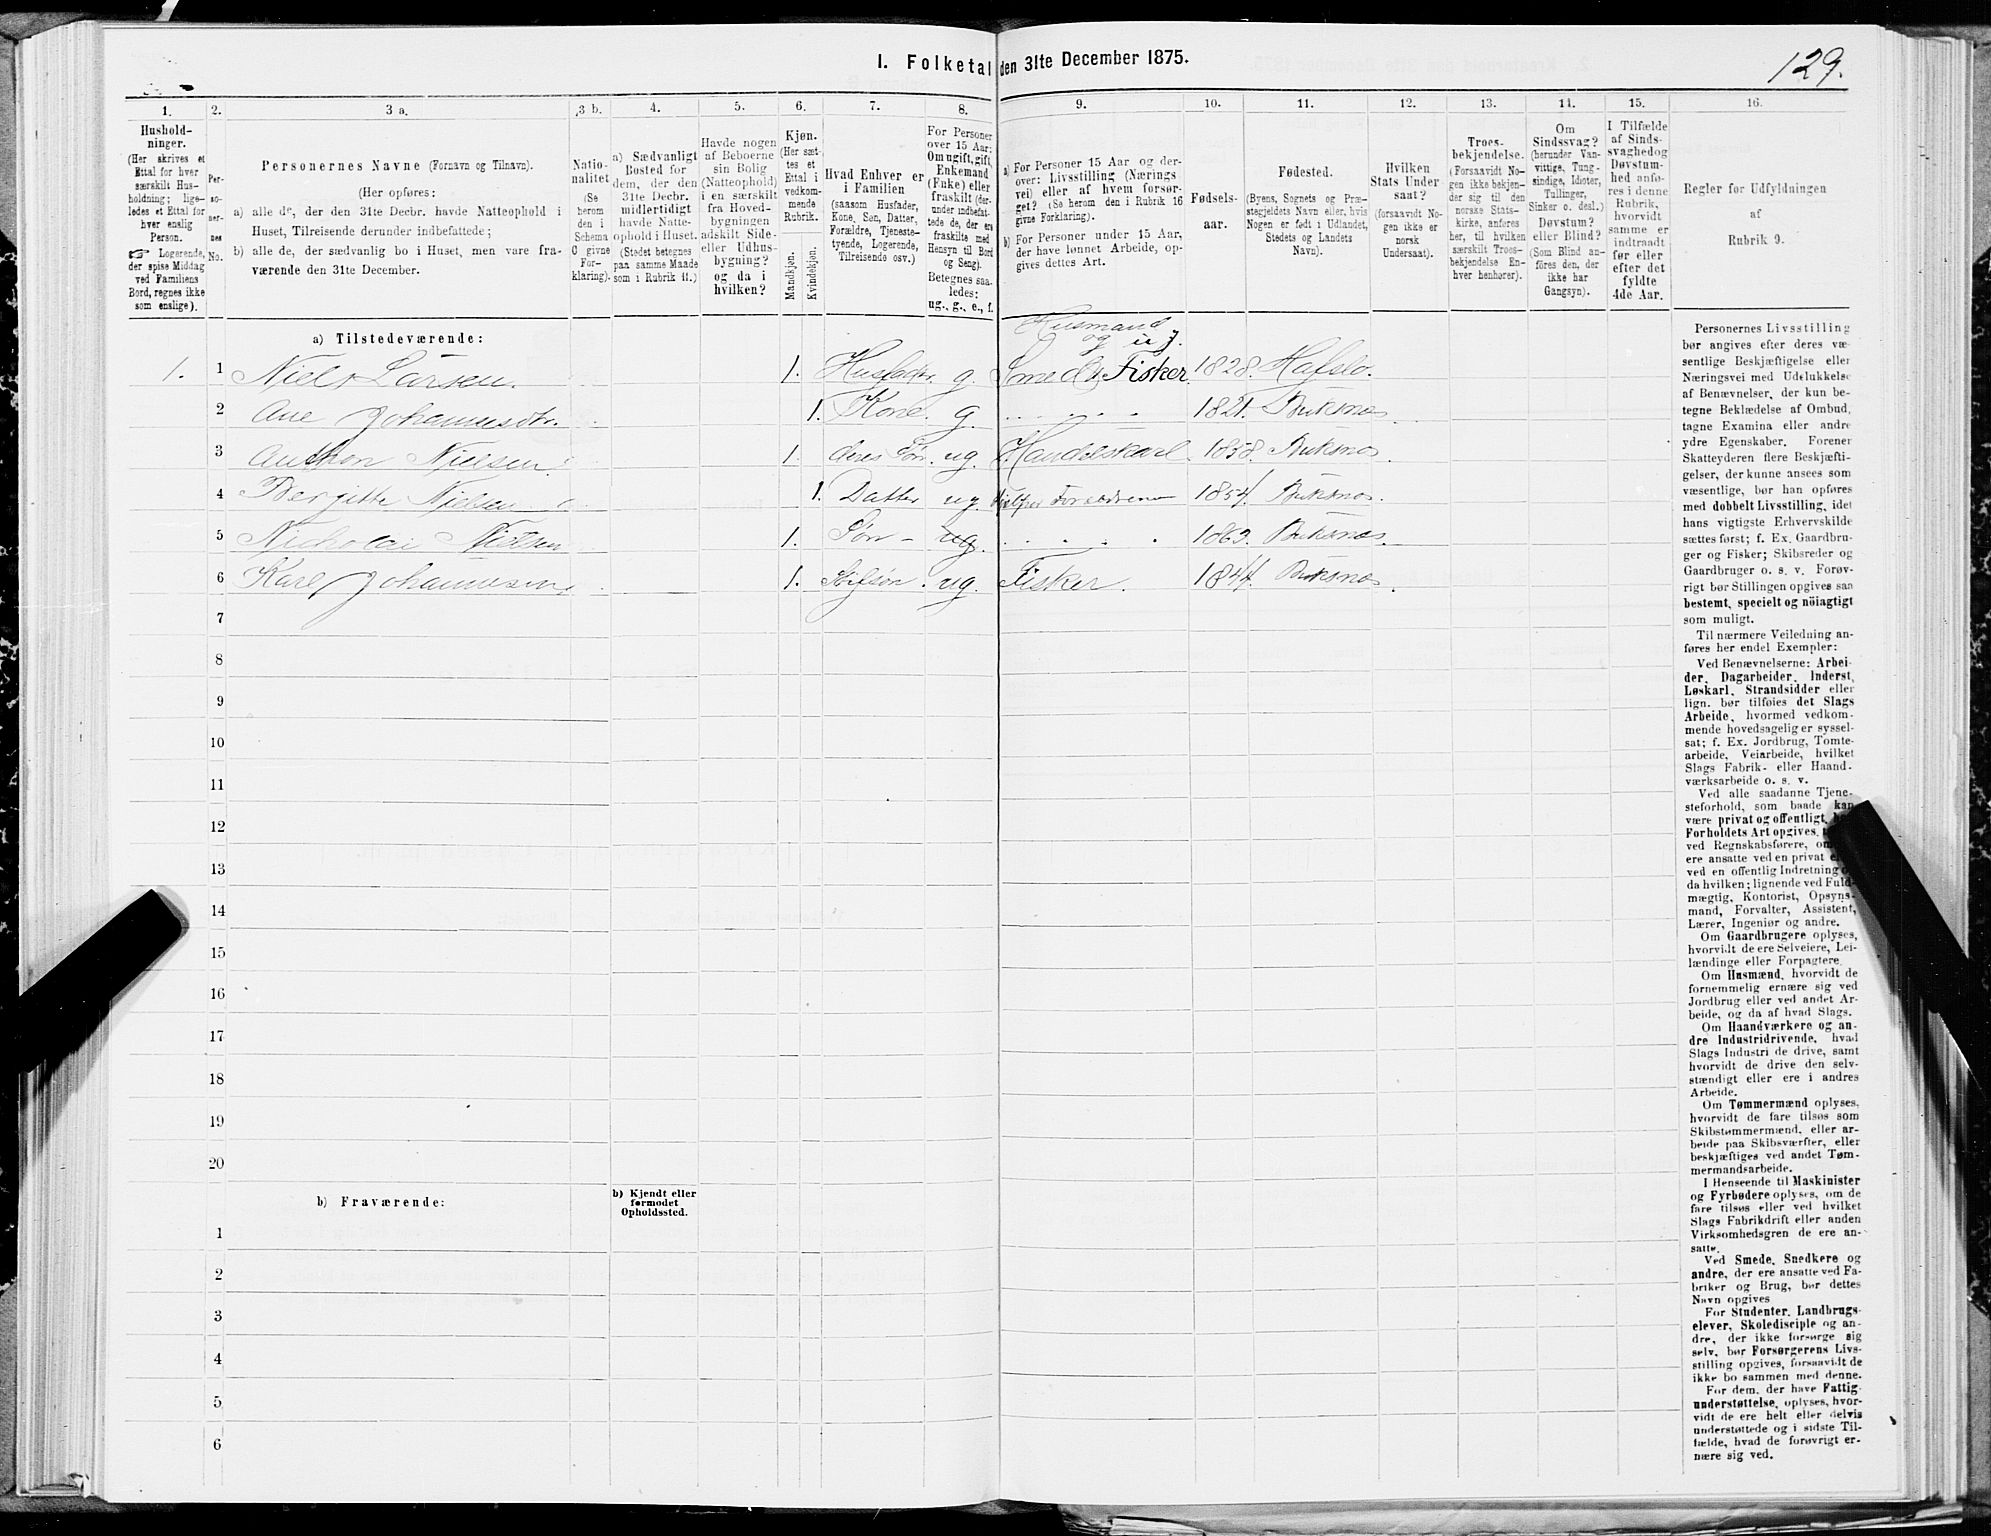 I. Folketal den 31te December 1875.
129.
1.
2.
3 a.
3 b.
4.
5.
6.
7.
8.
9.
10.
11.
12.
13.
14.
15.
16.
Hushold-
ninger.
(Her skrives et
Ettal for hver
særskilt Hus-
holdning; lige-
ledes et Ettal for
hver enslig
Person.
☞ Logerende,
der spise Middag
ved Familiens
Bord, regnes ikke
som enslige).
Per-
so-
ner-
nes
No.
Personernes Navne (Fornavn og Tilnavn).
(Her opføres:
a) alle de, der den 31te Decbr. havde Natteophold i
Huset, Tilreisende derunder indbefattede;
b) alle de, der sædvanlig bo i Huset, men vare fra-
værende den 31te December.
Natio-
nalitet
(Se
herom
den i
Schema
C givne
For-
klaring).
a) Sædvanligt
Bosted for
dem, der den
31te Decbr.
midlertidigt
havde Natte-
ophold i Huset.
(Stedet betegnes
paa samme Maade
som i Rubrik 11.)
Havde nogen
af Beboerne
sin Bolig
(Natteophold)
i en særskilt
fra Hoved-
bygningen
adskilt Side-
eller Udhus-
bygning?
og da i
hvilken?
Kjøn.
(Her sæt-
tes et
Ettal i
vedkom-
mende
Rubrik.
Mandkjøn.
Kvindekjøn.
Hvad Enhver er
i Familien
(saasom Husfader,
Kone, Søn, Datter,
Forældre, Tjeneste-
tyende, Logerende,
Tilreisende osv.)
For Personer
over 15 Aar:
Om ugift, gift,
Enkemand
(Enke) eller
fraskilt (der-
under indbefat-
tede de, der ere
fraskilte med
Hensyn til Bord
og Seng).
Betegnes saa-
ledes:
ug., g., e., f.
a) For Personer 15 Aar og der-
over: Livsstilling (Nærings
vei) eller af hvem forsør-
get? (Se herom den i Rubrik 16
givne Forklaring).
b) For Personer under 15 Aar,
der have lønnet Arbeide, op-
gives dettes Art.
Fødsels-
aar.
Fødested.
(Byens, Sognets og Præ-
stegjeldets Navn eller, hvis
Nogen er født i Udlandet,
Stedets og Landets
Navn).
Hvilken
Stats Under
saat?
(forsaavidt No-
gen ikke er
norsk
Undersaat).
Troes-
bekjendelse.
(Forsaavidt No-
gen ikke bekjen-
der sig til den
norske Stats-
kirke, anføres
her, til hvilken
særskilt Troes-
bekjendelse En-
hver henhører).
Om
Sindssvag?
(herunder Van-
vittige, Tung-
sindige, Idioter,
Tullinger,
Sinker o. desl.)
Døvstum?
eller Blind?
(Som Blind an-
føres den, der
ikke har
Gangsyn).
I Tilfælde
af Sinds-
svaghed og
Døvstum-
hed anfø-
res i denne
Rubrik,
hvorvidt
samme er
indtraadt
før eller
efter det
fyldte
4de Aar.
Regler for Udfyldningen
af
Rubrik 9.
a) Tilstedeværende:
Husmand
og u J.
1. 1 Niels Larsen. 1. Husfader. g. Smed, Fisker. 1828. Hafslo.
2 Ane Johannesdtr. 1. Kone. g. 1821. Buksnæs
3 Anthon Nielsen 1. deres Søn. ug. Handelskarl. 1858. Buksnæs.
4 Bergitte Nielsen 1. Datter ug. Hjelper Forældrene 1854. Buksnæs.
5 Nicholai Nielsen 1. Søn - ug. 1869. Buksnæs.
6 Karl Johannesen 1. Stifsøn. ug. Fisker. 1844. Buksnæs.
7
8
9
10
11
12
13
14
15
16
17
18
19
20
b) Fraværende:
b) Kjendt eller
formodet
Opholdssted.
1
2
3
4
5
6
Personernes Livsstilling
bør angives efter deres væ-
sentlige Beskjæftigelse eller
Næringsvei med Udelukkelse
af Benævnelser, der kun be-
tegne Beklædelse af Ombud,
tagne Examina eller andre
ydre Egenskaber. Forener
Skatteyderen flere Beskjæfti-
gelser, der kunne ansees som
væsentlige, bør han opføres
med dobbelt Livsstilling, idet
hans vigtigste Erhvervskilde
sættes først; f. Ex. Gaardbru-
ger og Fisker; Skibsreder og
Gaardbruger o. s. v. Forøv-
rigt bør Stillingen opgives saa
bestemt, specielt og nøiagtigt
som muligt.
Til nærmere Veiledning an-
føres her endel Exempler:
Ved Benævnelserne: Arbei-
der, Dagarbeider, Inderst,
Løskarl, Strandsidder eller
lign. bør tilføies det Slags
Arbeide, hvormed vedkom-
mende hovedsagelig er syssel-
sat; f. Ex. Jordbrug, Tomte-
arbeide, Veiarbeide, hvilket
Slags Fabrik- eller Haand-
værksarbeide o. s. v.
Ved alle saadanne Tjene-
steforhold, som baade kan
være privat og offentligt,
Forholdets Art opgives,
ved Regnskabsførere, om
ere ansatte ved en privat
ved en offentlig Indretning
da hvilken; lignende ved Fuld-
mægtig, Kontorist, Opsyns-
mand, Forvalter, Assistent,
Lærer, Ingeniør og andre.
Om Gaardbrugere oplyses,
hvorvidt de ere Selveiere, Lei-
lændinge eller Forpagtere.
Om Husmænd, hvorvidt de
fornemmelig ernære sig ved
Jordbrug eller ved andet Ar-
beide, og da af hvad Slags.
Om Haandværkere og an-
dre Industridrivende, hvad
Slags Industri de drive, samt
hvorvidt de drive den selv-
stændigt eller ere i andres
Arbeide.
Om Tømmermænd oplyses,
hvorvidt de fare tilsøs som
Skibstømmermænd, eller ar-
beide paa Skibsværfter, eller
beskjæftiges ved andet Tøm-
mermandsarbeide.
I Henseende til Maskinister
og Fyrbødere oplyses, om de
fare tilsøs eller ved hvilket
Slags Fabrikdrift eller anden
Virksomhedsgren de ere an-
satte.
Ved Smede, Snedkere og
andre, der ere ansatte ved Fa-
briker og Brug, bør dettes
Navn opgives
For Studenter, Landbrugs-
elever, Skoledisciple og an-
dre, der ikke forsørge sig
selv, bør Forsørgerens Livs-
stilling opgives, forsaavidt de
ikke bo sammen med denne.
For dem, der have Fattig-
understøttelse, oplyses, hvor-
vidt de ere helt eller delvis
understøttede og i sidste Til-
fælde, hvad de forøvrigt er-
nære sig ved.